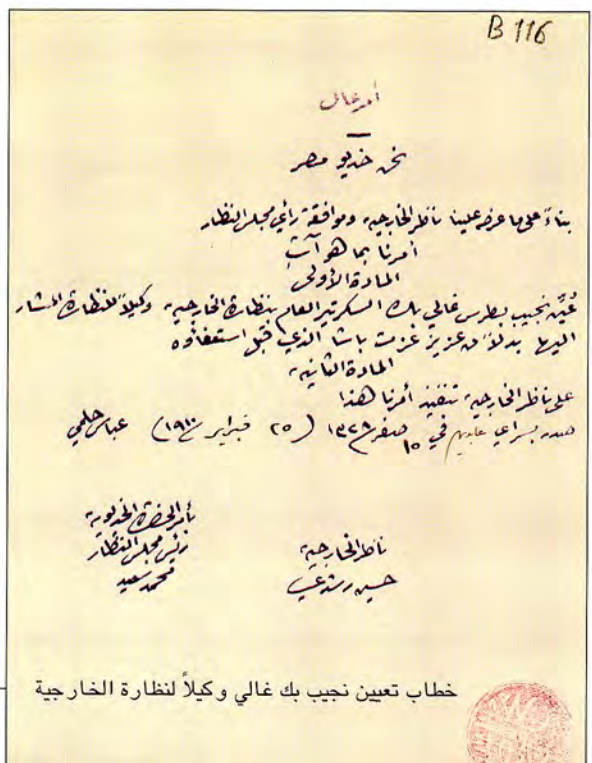 B 116
أمر عال
نحن خديو مصر
بناءً على ما عرضه علينا ناظر الخارجية وموافقة رأي مجلس النظار
أمرنا بما هو آتٍ
المادة الأولى
عُيِّن نجيب بطرس غالي بك السكرتير العام بنظارة الخارجية وكيلاً للنظارة المشار
اليها بدلاً من عزيز عزت باشا الذي قبل استعفاؤه
المادة الثانية
على ناظر الخارجية تنفيذ أمرنا هذا
صدر بسراي عابدين في ١٥ صفر ١٣٢٨ (٢٥ فبراير ١٩١٠) عباس حلمي
بأمر الحضرة الخديوية
رئيس مجلس النظار
محمد سعيد
ناظر الخارجية
حسين رشدي
خطاب تعيين نجيب بك غالي وكيلاً لنظارة الخارجية